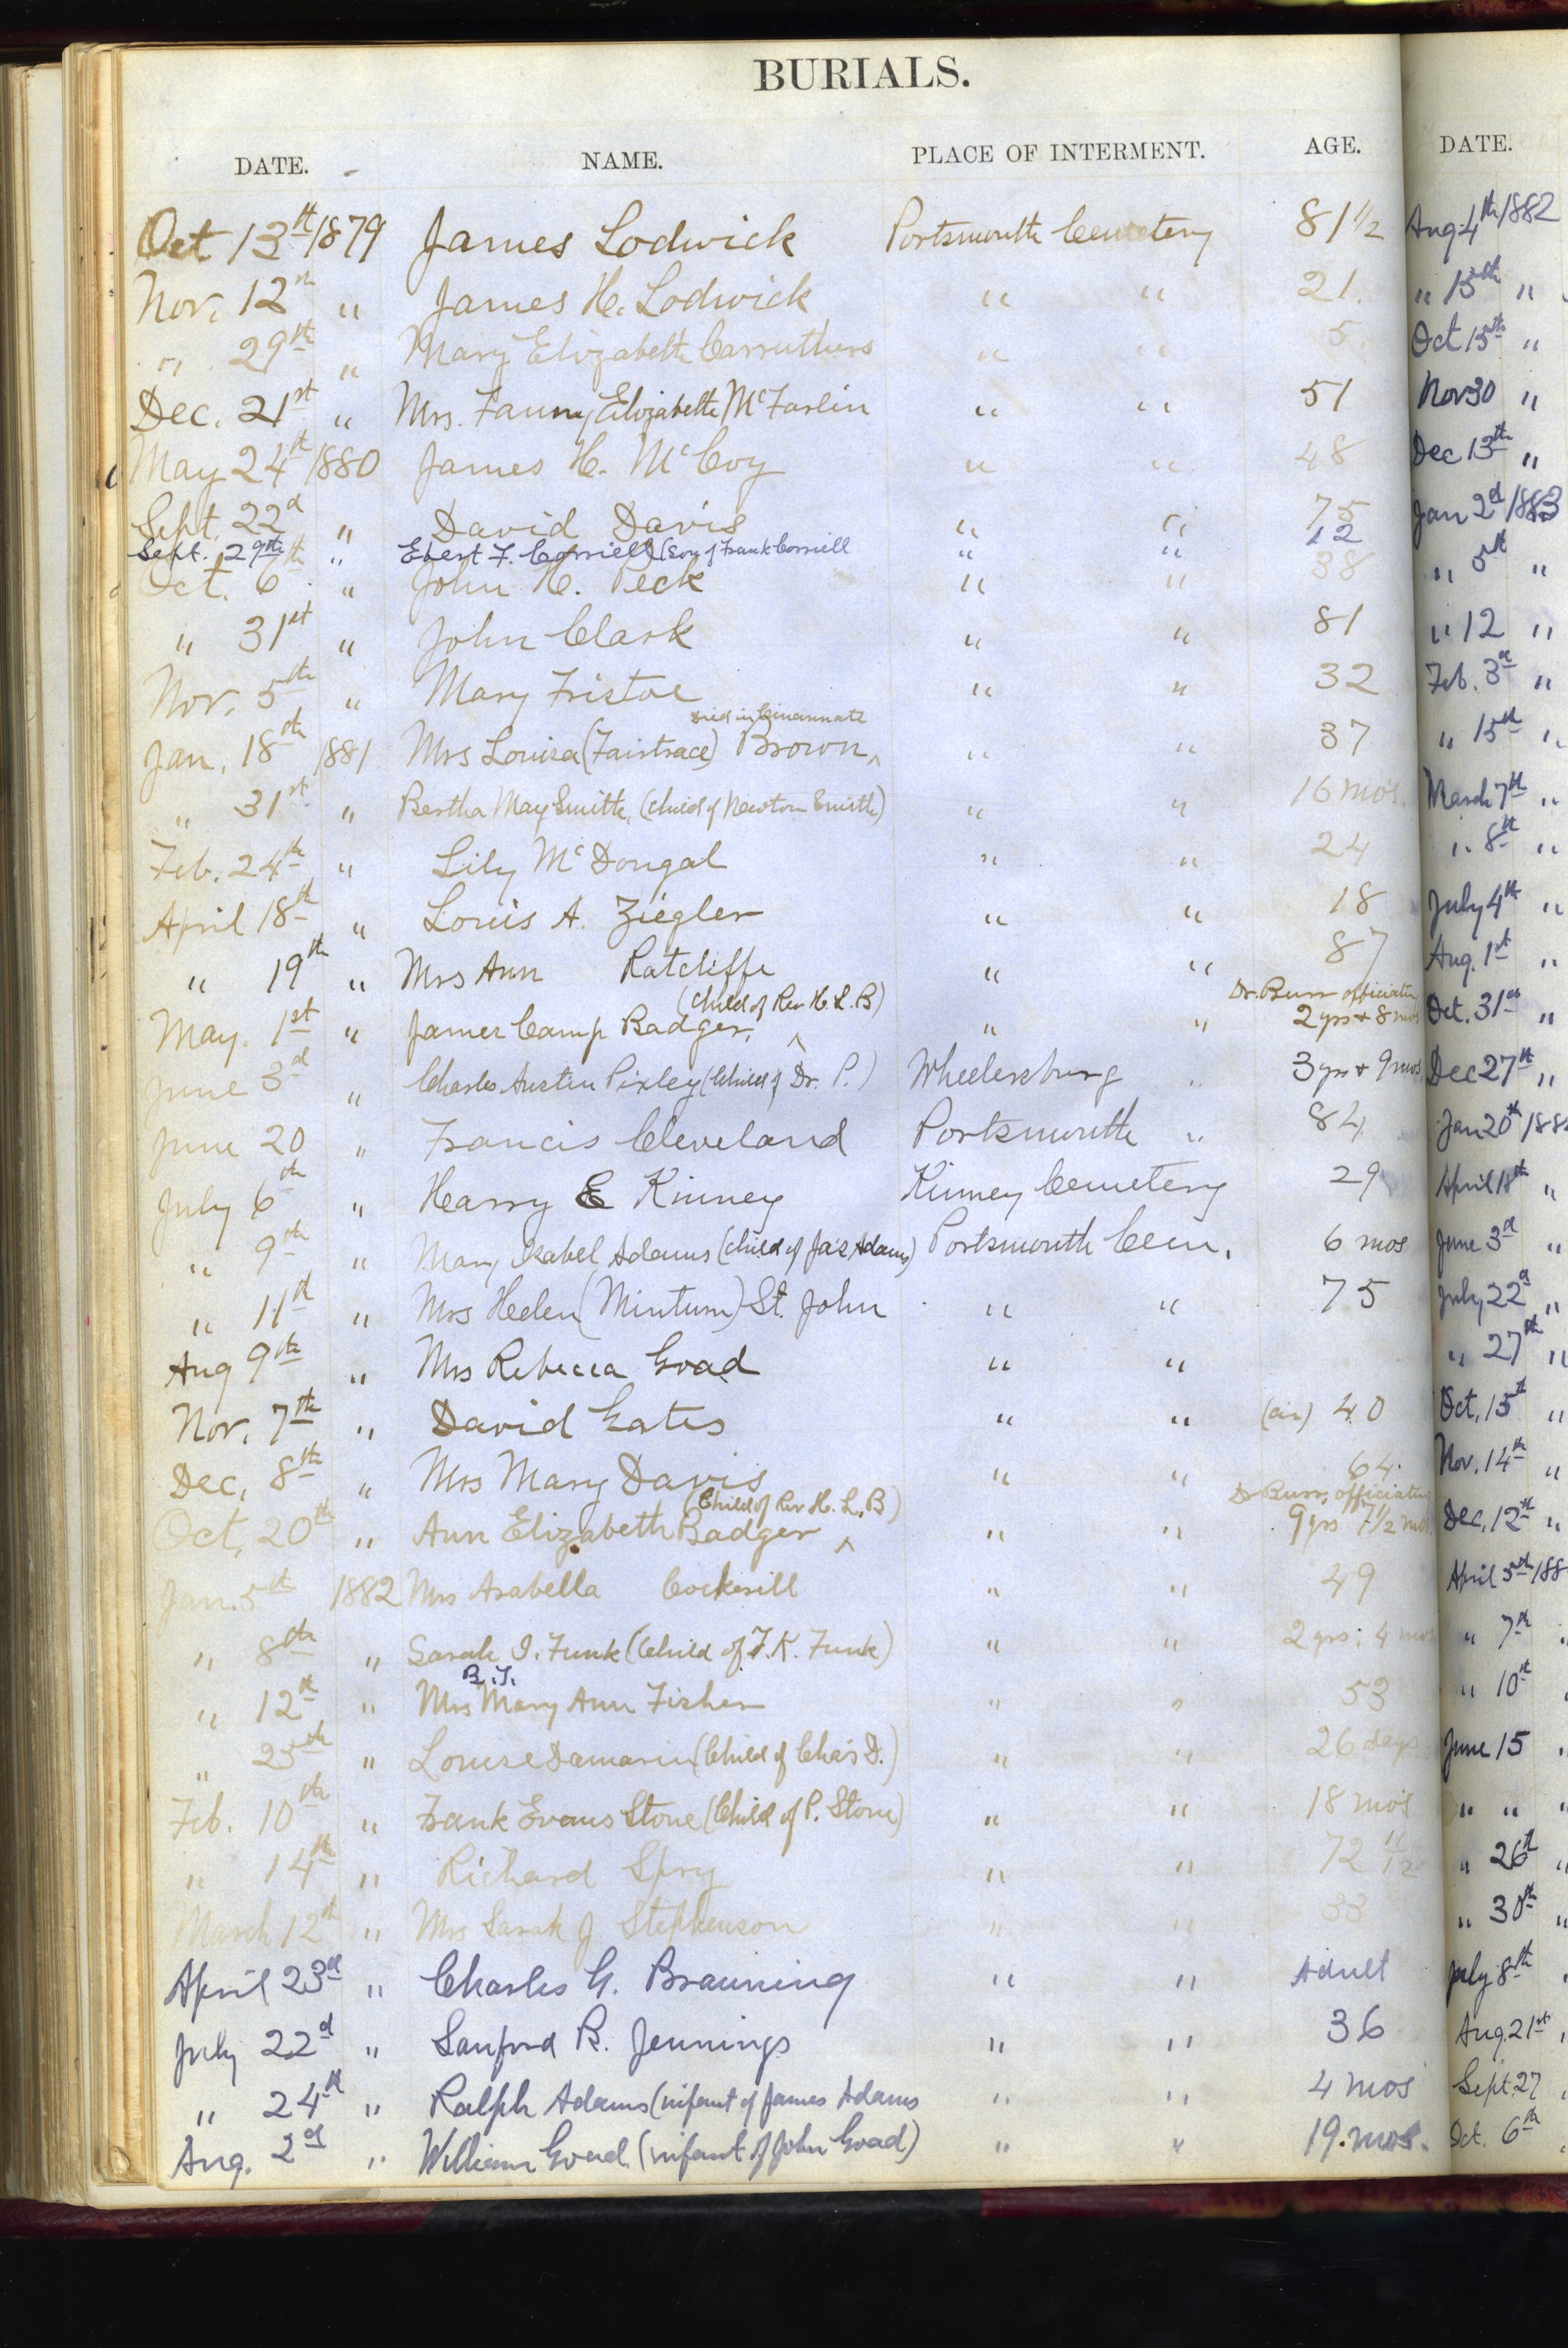 BURIALS.
DATE. NAME. PLACE OF INTERMENT. AGE.
Oct 13th/1879 James Lodwick Portsmouth Cemetery 81 1/2
Nov. 12th " James H. Lodwick " " 21.
" 29th " Mary Elizabeth Carruthers " " 5.
Dec. 21st " Mrs. Fanny Elizabeth McFarlin " " 51
May 24th/1880 James H. McCoy " " 48
Sept. 22d " David Davis " " 75
Sept. 29th " Ebert F. Corriell (Son of Frank Corriell " " 12
Oct. 6th " John H. Peck " " 38
" 31st " John Clark " " 81
Nov. 5th " Mary Fristoe " " 32
died in Cincinnati
Jan. 18th 1881 Mrs Louisa (Fairtrace) Brown ^ " " 37
" 31st " Bertha May Smith, (child of Newton Smith) " " 16 mos.
Feb. 24th " Lily McDougal " " 24
April 18th " Louis A. Ziegler " " 18
" 19th " Mrs Ann Ratcliffe " " 87
(Child of Rev H. L. B) Dr. Burr officiating
May. 1st " James Camp Badger, ^ " " 2 yrs & 8 mos
June 3d " Charles Austin Pixley (Child of Dr. P.) Wheelersburg " 3 yrs & 9 mos
June 20 " Francis Cleveland Portsmouth " 84
July 6th " Harry E Kinney Kinney Cemetery 29
" 9th " Mary Isabel Adams (child of Jas Adams) Portsmouth Cem. 6 mos
" 11th " Mrs Helen (Minturn) St. John " " 75
Aug 9th " Mrs Rebecca Goad " "
Nov. 7th " David Gates " " (cir) 40
Dec. 8th " Mrs Mary Davis " " 64.
(Child of Rev H. L. B) Dr Burr, officiating
Oct. 20th " Ann Elizabeth Badger ^ " " 9 yrs 7 1/2 mos
Jan. 5th 1882 Mrs Arabella Cockerill " " 49
" 8th " Sarah I. Funk (Child of T. K. Funk) " " 2 yrs; 4 mos
B. T.
" 12th " Mrs Mary Ann Fisher " " 53
" 25th " Louise Damarin (Child of Chas D.) " " 26 days
Feb. 10th " Frank Evans Stone (Child of P. Stone) " " 18 mos
" 14th " Richard Spry " " 72 11/12
March 12th " Mrs Sarah J Stephenson " " 33
April 23d " Charles G. Brauning " " Adult
July 22d " Sanford R. Jennings " " 36
" 24th " Ralph Adams (infant of James Adams " " 4 mos
Aug. 2d " William Goad (infant of John Goad) " " 19. mos.
DATE.
Aug 4th/1882
" 15th "
Oct 15th "
Nov 30 "
Dec 13th "
Jan 2d/1883
" 5th "
" 12 "
Feb. 3d "
" 15th "
March 7th "
" 8th "
July 4th "
Aug. 1st "
Oct. 31st "
Dec 27th "
Jan 20th/188
April 18th "
June 3d "
July 22d "
" 27th "
Oct. 15th "
Nov. 14th "
Dec. 12th "
April 5th/188
" 7th "
" 10th
June 15
" " "
" 26th "
" 30th "
July 8th
Aug. 21st
Sept. 27
Oct. 6th